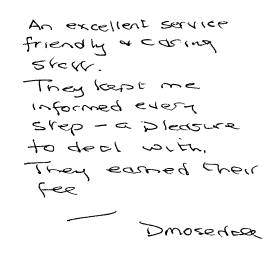 An excellent service
friendly & caring
staff.
They kept me
informed every
step - a pleasure
to deal with.
They earned their
fee